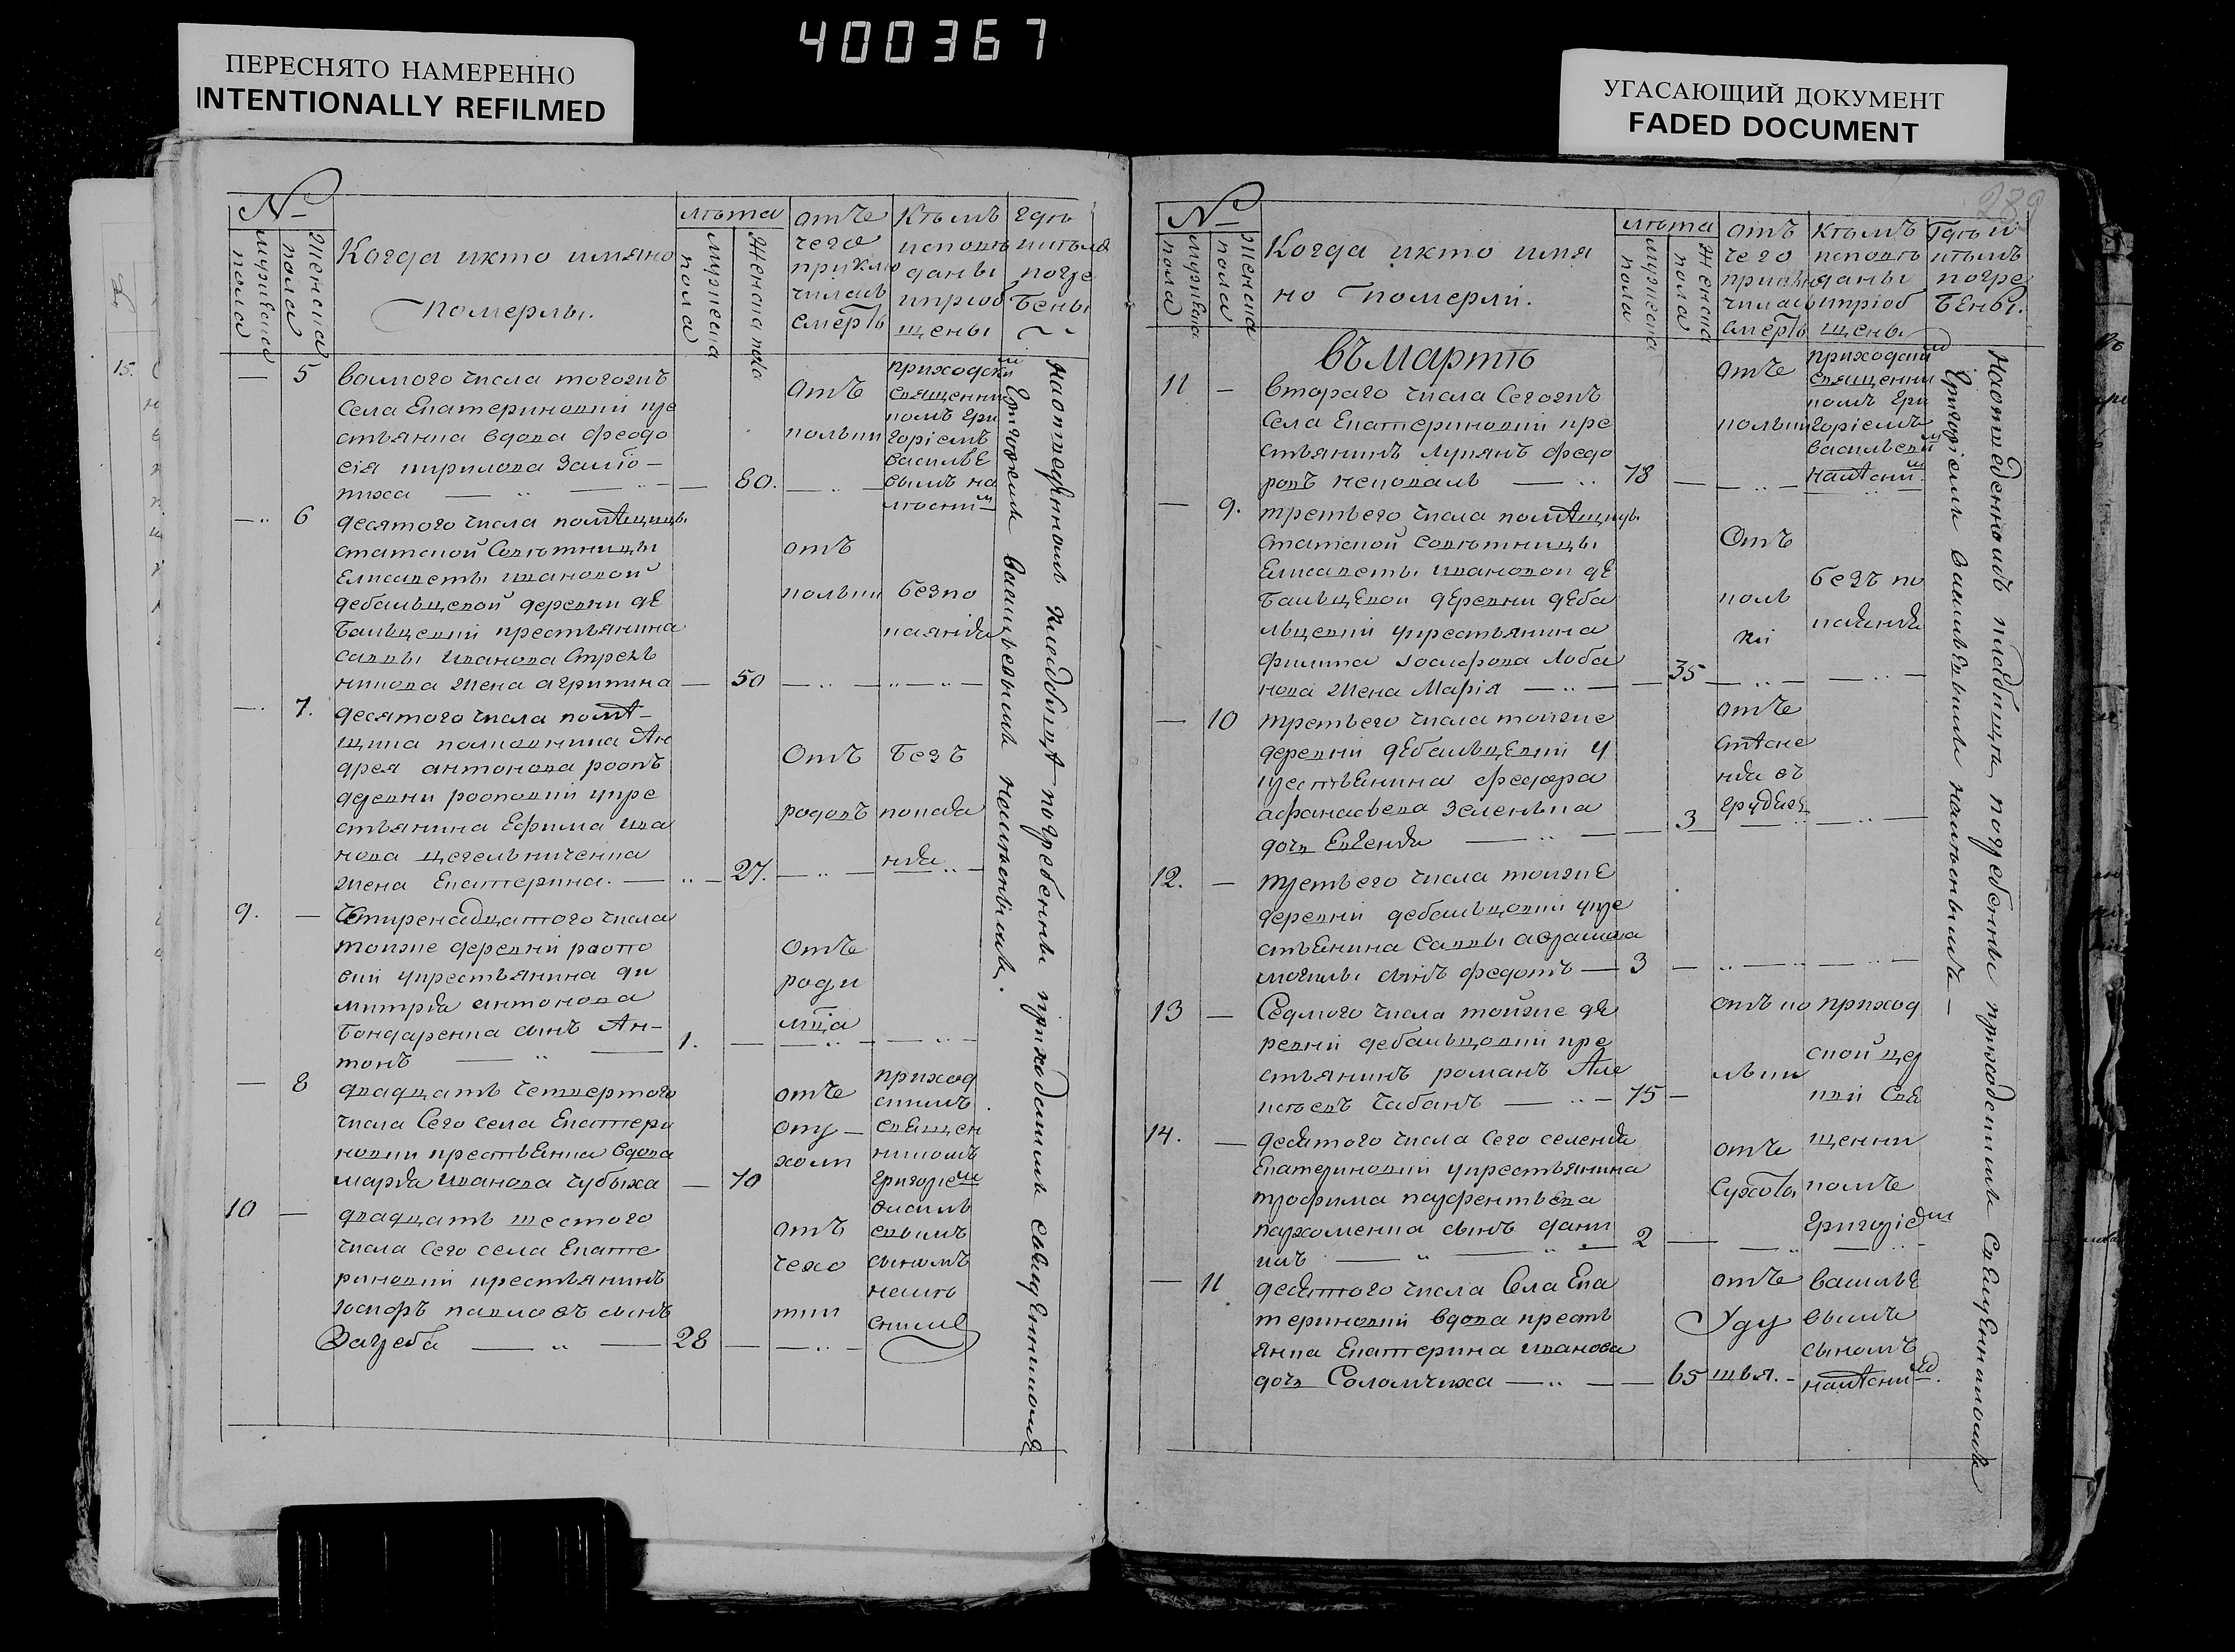 400367
ПЕРЕСНЯТО НАМЕРЕННО
INTENTIONALLY REFILMED
УГАСАЮЩИЙ ДОКУМЕНТ
FADED DOCUMENT
№
мужеска пола
женска пола
Когда икто имяно
померлы.
лѣта
мужеска пола
женска пола
отъ
чего
приклю
чилась
смерть
Кѣмъ
исповѣ
даны
ипріоб
щены
гдѣ
икѣмъ
погре
бены
— 5
восмого числа тогожъ
Села Екатериновки кре
стьянка вдова феодо
сія кирилова
— 80.
отъ
колики
приходскимъ
Священни
комъ Гри
горіемъ
василье
вымъ на
мѣскимъ
— 6
десятого числа помѣщицы
статской Совѣтницы
Елисаветы ивановой
дебальцевой деревни де
бальцевки крестьянина
саввы иванова
жена агрипина — 50
отъ
колики
безпо
каянія
— 7.
десятого числа помѣ-
щика полковника Ан
дрея антонова
деревни укре
стьянина Ефима ива
нова цегельниченка
жена Екатерина. — 27.
Отъ
родовъ
безъ
покая
нія
9. —
Четыренадцятого числа
тойже деревни
укрестьянина ди
митрія антонова
бондаренка сынъ Ан-
тонъ — 1.
отъ
роди
мца
— 8
двадцать четвертого
числа Сего села Екатери
новки крестьянка вдова
марфа иванова чубиха — 70
отъ
опу-
холи
приход
скимъ
священ
никомъ
григоріемъ
василь
евымъ
сыномъ
намѣ
скимъ
10 —
двадцать шестого
числа Сего села Екате
риновки крестьянинъ
іосифъ павловъ сынъ
— 28
отъ
чехо
тки
наотведенномъ кледбищѣ погребенны приходскимъ священникомъ
Григоріемъ васильевымъ намѣскимъ.
239
№
мужеска пола
женска пола
Когда икто имя
но померли.
лѣта
мужеска пола
женска пола
отъ
чего
приклю
чилась
смерть
Кѣмъ
исповѣ
даны
ипріоб
щены
Гдѣ и
кѣмъ
погре
бены.
въ Мартѣ
11 —
второго числа Сегожъ
Села Екатериновки кре
стьянинъ лукянъ федо
ровъ — 78
отъ
колики
приходским
священни
комъ гри
горіемъ
васильевим
намѣским
— 9.
третьего числа помѣщицы
статской совѣтницы
Елисаветы ивановой де
бальцевой деревни деба
льцевки укрестьянина
филипа іосифова лоба
нова жена Марія — 35
Отъ
коли
ки
безъ по
каянія
— 10
третьего числа тойже
деревни дебальцевки у
крестьянина федора
афанасьева
дочь Евгенія — 3
отъ
стѣсне
нія въ
грудяхъ
12. —
третьего числа тойже
деревни дебальцовки укре
стьянина саввы
могилы сынъ федотъ — 3
13 —
Седмого числа тойже де
ревни дебальцовки кре
стьянинъ романъ Але
ксѣевъ чабанъ — 75
отъ ко
лики
приход
ской цер
кви Свя
щенни
комъ
григоріемъ
василье
вымъ
сыномъ
намѣским.
14. —
десятого числа сего селенія
Екатериновки укрестьянина
трофима парфентьева
пархоменка сынъ дани
илъ — 2
отъ
сухоты
— 11
десятого числа Села Ека
териновки вдова кресть
янка Екатерина иванова
дочь Соломчиха — 65
отъ
Уду
шья.
Наотведенномъ кледбищѣ погребенны приходскимъ священникомъ
Григоріемъ васильевымъ намѣскимъ —